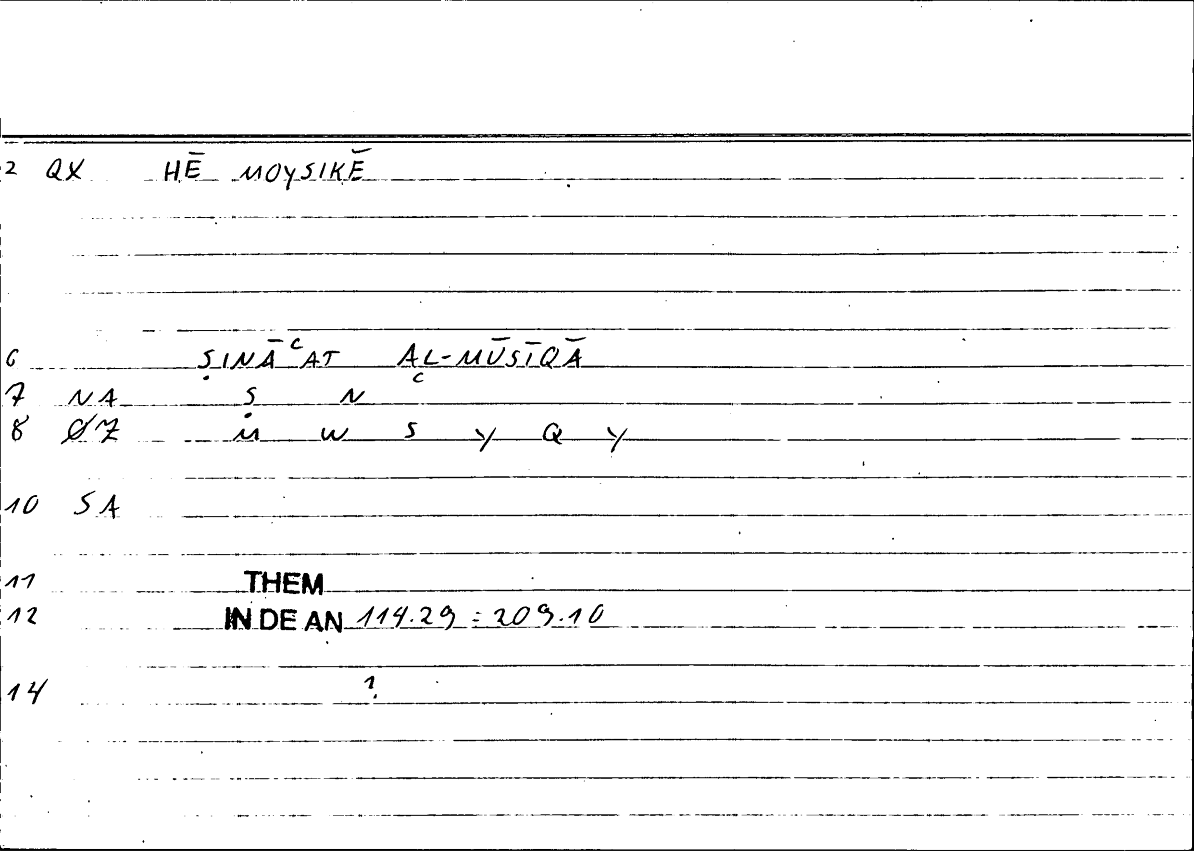 2 QX HĒ MOYSIKĒ
6 ṢINĀʿAT AL-MŪSĪQĀ
7 NA Ṣ N ʿ
8 ØZ M W S Y Q Y
10 SA
11 THEM
12 IN DE AN 114.29 = 209.10
14 1.